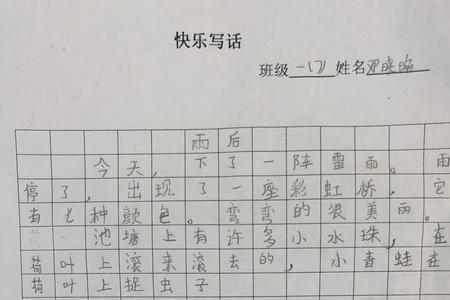 快乐写话
班级一(7)姓名邓
雨后
今天，下了一阵雷雨。雨
停了，出现了一座彩虹桥，它
有七种颜色。弯弯的很美丽。
池塘上有许多小水珠，在
荷叶上滚来滚去的，小青蛙在
荷叶上捉虫子